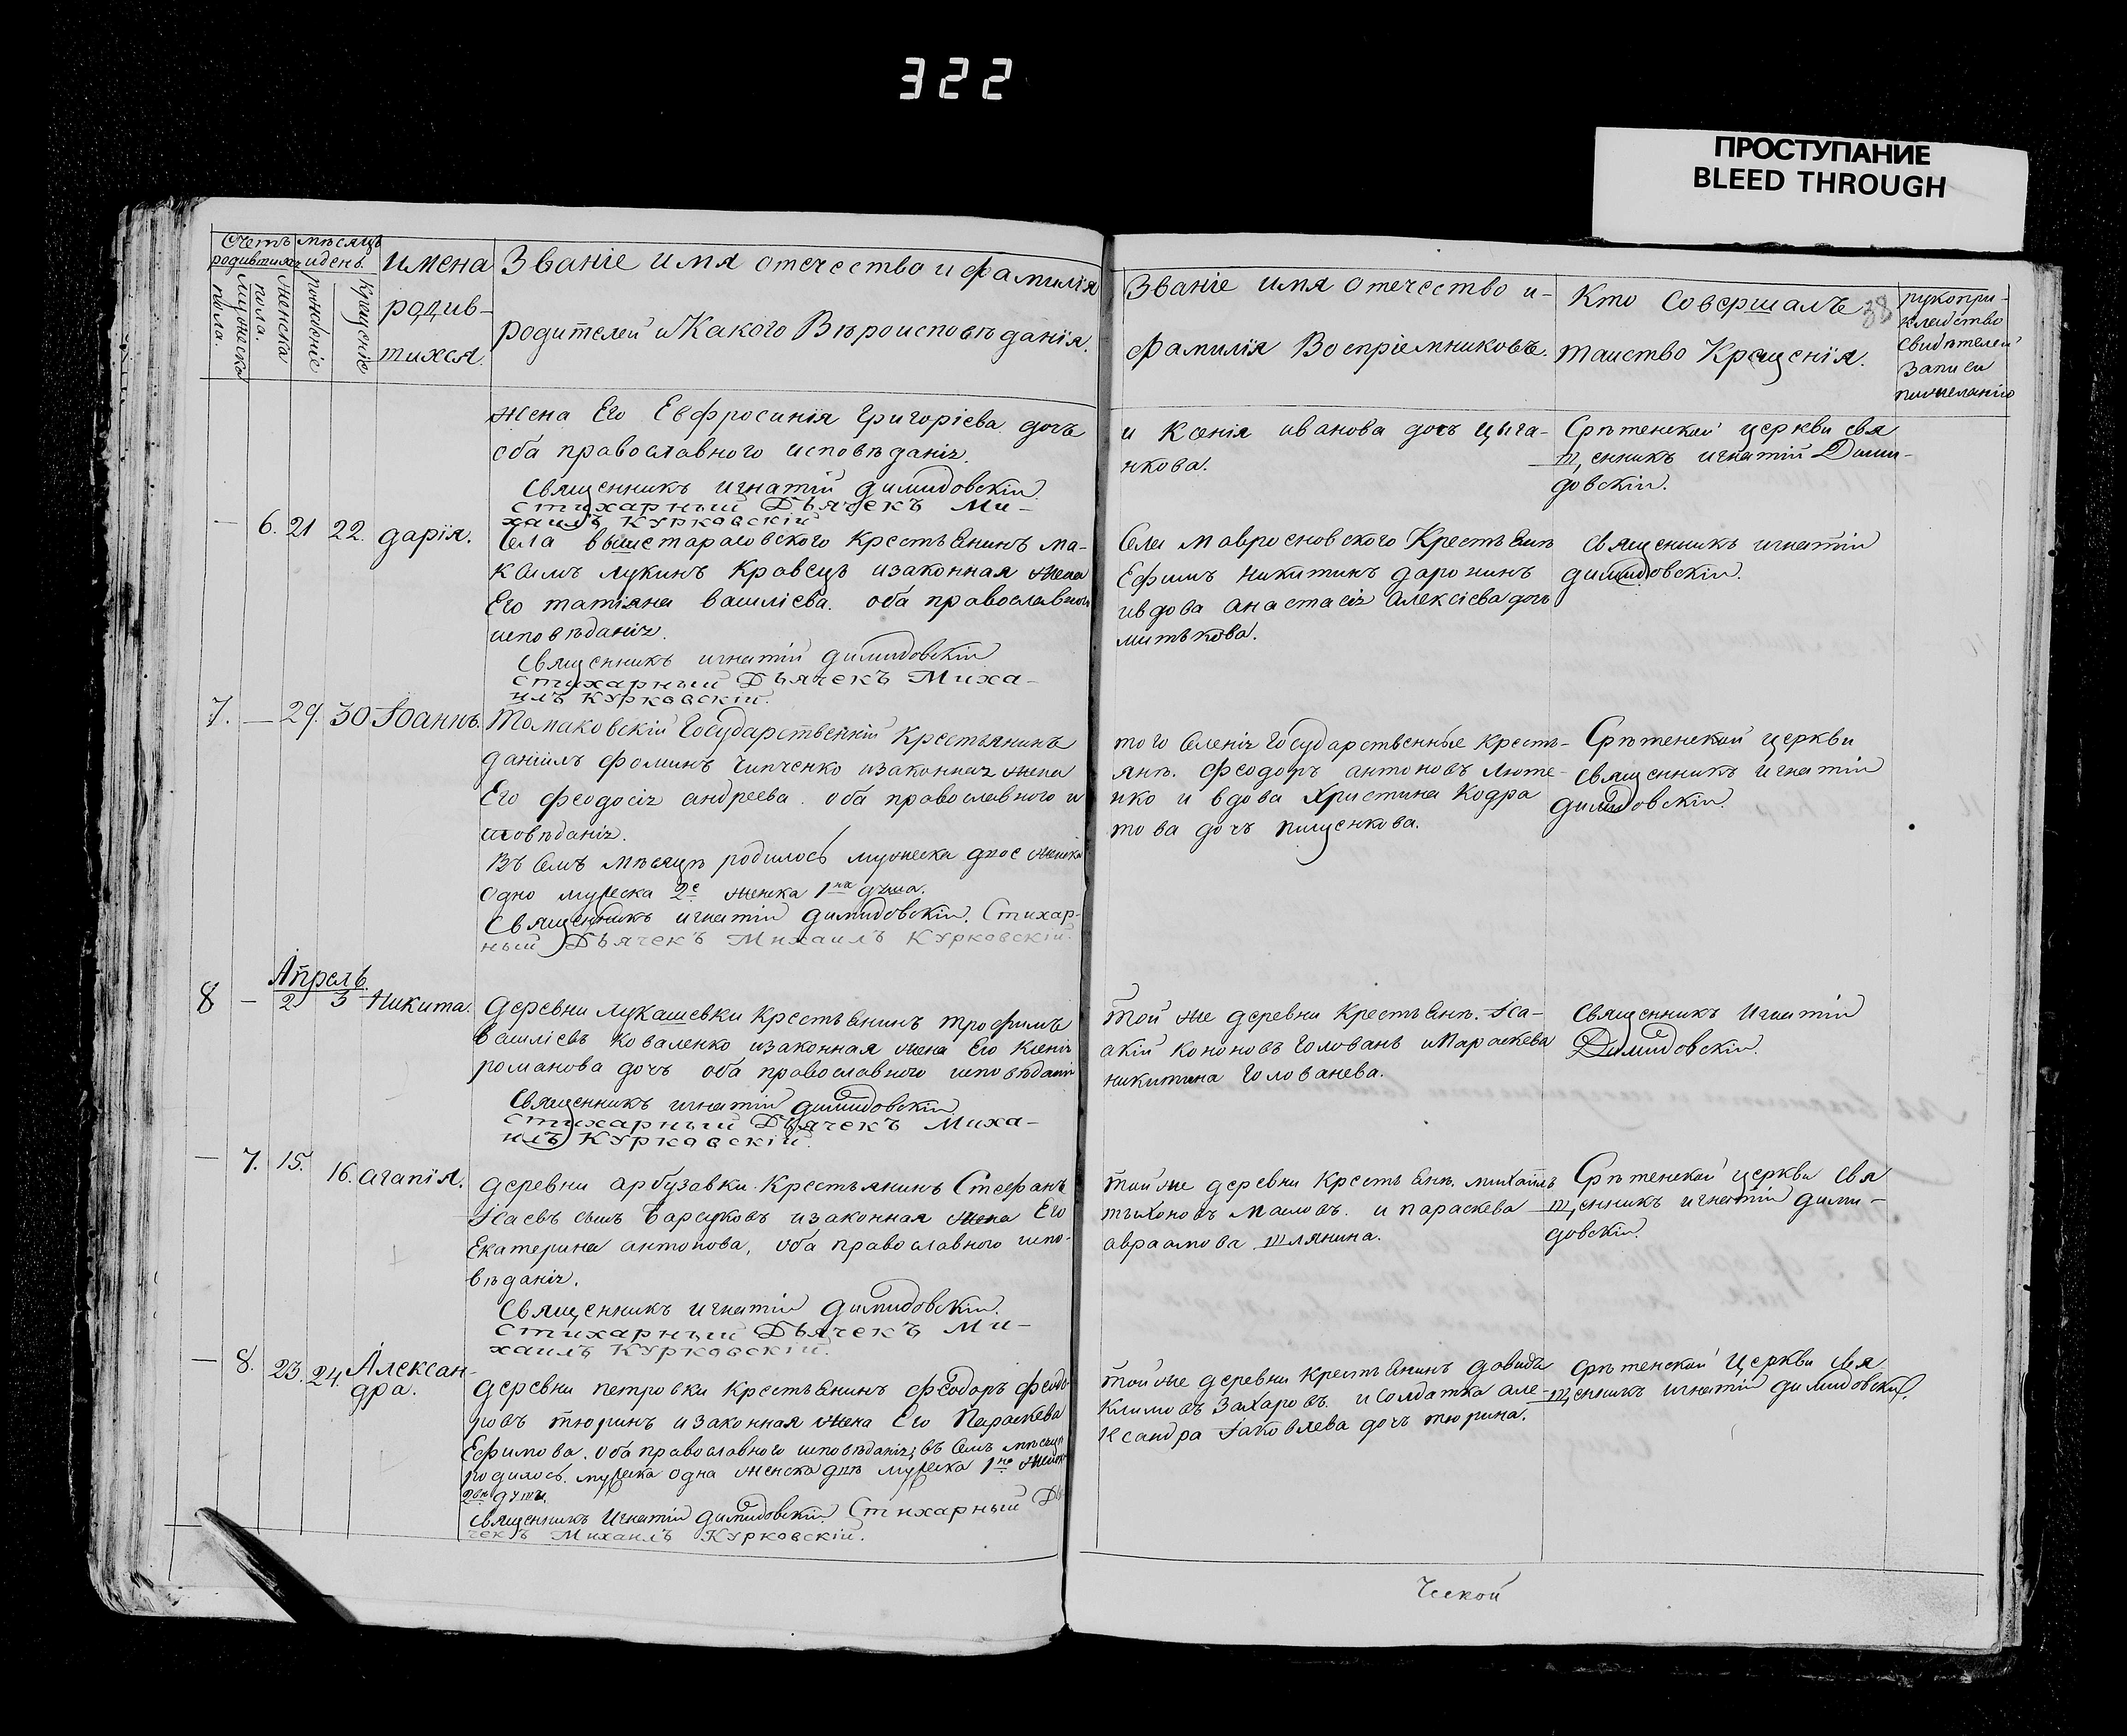 322
ПРОСТУПАНИЕ
BLEED THROUGH
Счетъ
родившихъ
мѣсяцъ
и день.
мужеска
пола.
женска
пола.
рожденіе
крещеніе
имена
родив-
шихся.
Званіе имя отечество и фамилія
родителей и Какого Вѣроисповѣданія.
Званіе имя отечество и-
фамилія Воспріемниковъ.
Кто совершалъ
таинство Крещенія.
38
рукопри-
кладство
свидѣтелей
записи
по желанію
жена Его Евфросинія григоріева дочь
оба православного исповѣданія.
Священникъ игнатій димидовскій
Стихарный Дьячекъ Ми-
хаилъ Курковскій
и Ксенія иванова дочь цыга-
нкова.
Срѣтенской церкви свя
щенникъ игнатій Дими-
довскій.
— 6. 21 22. дарія.
Села вышетарасовского крестьянинъ ма-
ксимъ лукинъ Кравецъ и законная жена
Его татіяна василіева. оба православного
исповѣданія.
Священникъ игнатій димидовскій
Стихарный Дьячекъ Миха-
илъ Курковскій.
Села мавроеновского Крестьянинъ
Ефимъ никитинъ даронинъ
и вдова анастасія алексіева дочь
митькова.
Священникъ игнатій
димидовскій.
7. — 29. 30 Іоаннъ.
Томаковскій Государственній крестьянинъ
даніилъ фоминъ Чипченко и законная жена
Его феодосія андреева. оба православного и
споведанія.
Въ семъ мѣсяцѣ родилось мужеска двое женска
одно мужеска 2е женска 1на душа.
Священникъ игнатій димидовскій. Стихар-
ный Дьячекъ Михаилъ Курковскій.
того селенія государственные кресть-
яне. феодоръ антоновъ люте-
нко и вдова христина Кодра
това дочь пищенкова.
Срѣтенской церкви
священникъ игнатій
димидовскій.
Апрель.
8 — 2 3 Никита.
деревни лукашевки крестьянинъ трофимъ
василіевъ коваленко и законная жена Его ксенія
романова дочь оба православного исповѣданія
Священникъ игнатій димидовскій
Стихарный Дьячекъ Миха-
илъ Курковскій.
той же деревни крестьяне. Іса-
акій кононовъ головань и Параскева
никитина голованева.
Священникъ Игнатій
Димидовскій.
— 7. 15. 16. агапія.
деревни арбузавки крестьянинъ Стефанъ
Ісаевъ сынъ Барсуковъ и законная жена Его
Екатерина антонова, оба православного испо-
вѣданія.
Священникъ игнатій димидовскій.
Стихарный Дьячекъ Ми-
хаилъ Курковскій.
той же деревни крестьяне. михаилъ
тихоновъ масловъ. и параскева
авраамова шлянина.
Срѣтенской церкви свя
щенникъ игнатій дими-
довскій.
— 8. 23. 24. Алексан-
дра.
деревни петровки крестьянинъ феодоръ феодо
ровъ тюринъ и законная жена Его Параскева
Ефимова. оба православного исповѣданія; въ семъ мѣсяцѣ
родилось. мужеска одна женска двѣ мужеска 1на женска
2вѣ души.
священникъ Игнатій димидовскій. Стихарный Дья
чекъ Михаилъ Курковскій.
той же деревни крестьянинъ довидъ
климовъ Захаровъ. и солдатка але-
ксандра Іаковлева дочь тюрина.
срѣтенской церкви свя
щенникъ игнатій димидовскій.
Ческой